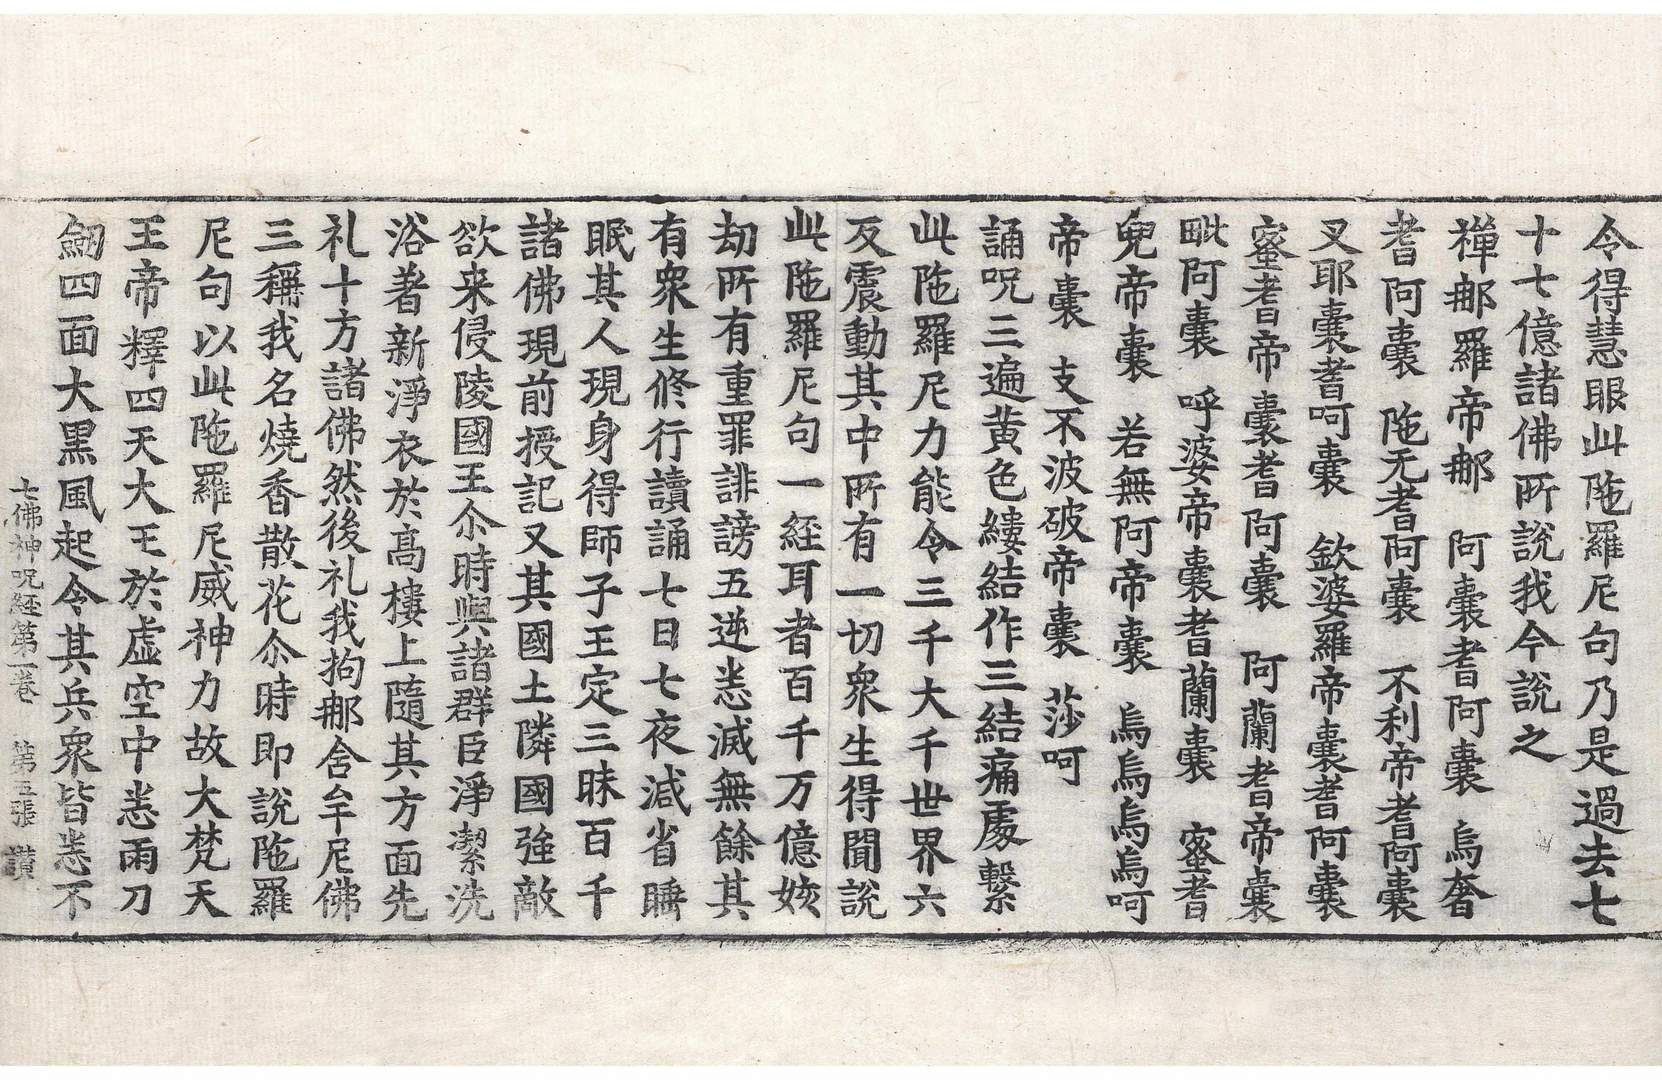 令得慧眼此陁羅尼句乃是過去七
十七億諸佛所說我今說之
禪𨚗羅帝𨚗　阿囊耆阿囊　烏奢
耆阿囊　陁无耆阿囊　不利帝耆阿囊
叉耶囊耆呵囊　欽婆羅帝囊耆阿囊
蜜耆帝囊耆阿囊　阿蘭耆帝囊
毗阿囊　呼婆帝囊耆蘭囊　蜜耆
兜帝囊　若無阿帝囊　烏烏烏烏呵
帝囊　支不波破帝囊　莎呵
誦呪三遍黃色縷結作三結痛處繫
此陁羅尼力能令三千大千世界六
反震動其中所有一切衆生得聞說
此陁羅尼句一経耳者百千万億姟
劫所有重罪誹謗五逆悉滅無餘其
有衆生修行讀誦七日七夜減省睡
眠其人現身得師子王定三昧百千
諸佛現前授記又其國土隣國強敵
欲来侵陵國王尒時與諸群臣淨潔洗
浴著新淨衣於髙樓上隨其方面先
礼十方諸佛然後礼我拘𨚗舍牟尼佛
三稱我名燒香散花尒時即說陁羅
尼句以此陁羅尼威神力故大梵天
王帝釋四天大王於虛空中悉雨刀
劒四面大黑風起令其兵衆皆悉不
七佛神呪経第一卷　第五張　讚